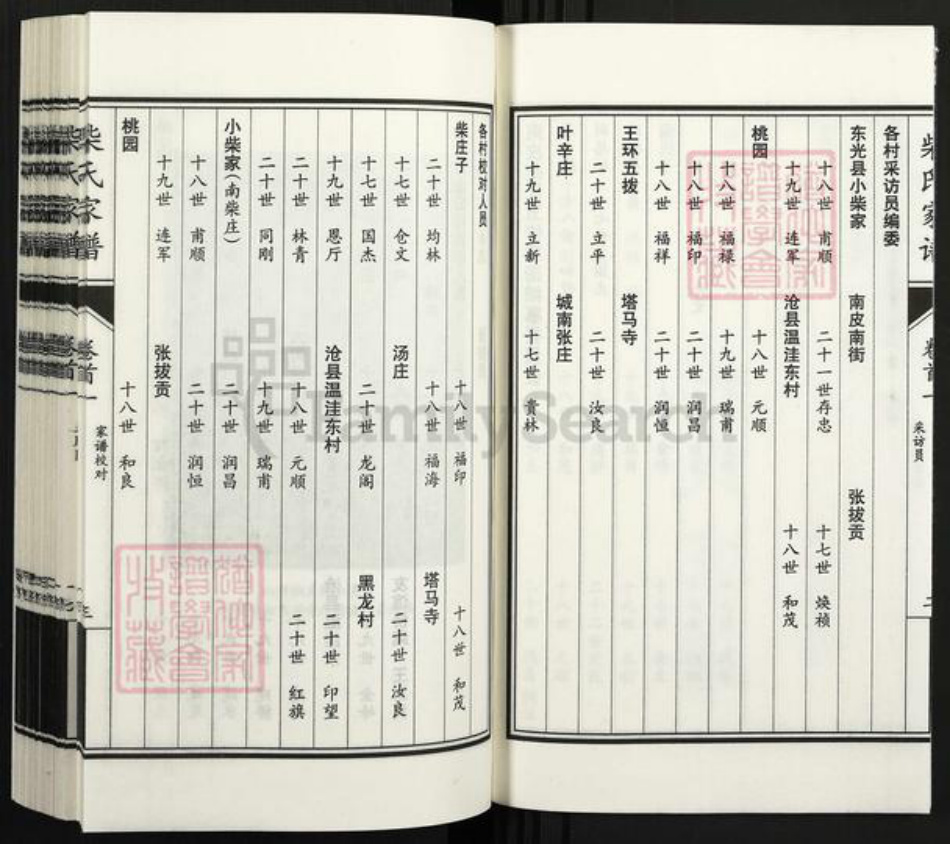 柴氏家谱
卷首
采访员
二
各村采访员编委
东光县小柴家 南皮南街 张拔贡
十八世 甫顺 二十一世存忠 十七世 焕祯
十九世 连军 沧县温洼东村 十八世 和茂
桃园 十八世 元顺
十八世 福禄 十九世 瑞甫
十八世 福印 二十世 润昌
十八世 福祥 二十世 润恒
王环五拨 塔马寺
二十世 立平 二十世 汝良
叶辛庄 城南张庄
十九世 立新 十七世 贵林
各村校对人员
柴庄子 十八世 福印 十八世 和茂
二十世 均林 十八世 福海 塔马寺
十七世 仓文 汤庄 二十世 汝良
十七世 国杰 二十世 龙阁 黑龙村
十九世 恩厅 沧县温洼东村 二十世 印望
二十世 林青 十八世 元顺 二十世 红旗
二十世 同刚 十九世 瑞甫
小柴家（南柴庄） 二十世 润昌
十八世 甫顺 二十世 润恒
十九世 连军 张拔贡
桃园 十八世 和良
柴氏家谱
卷首一
家谱校对
FamilySearch